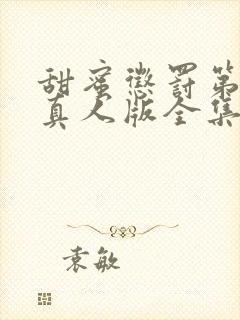 甜蜜惩罚第
真人版全集
袁敏